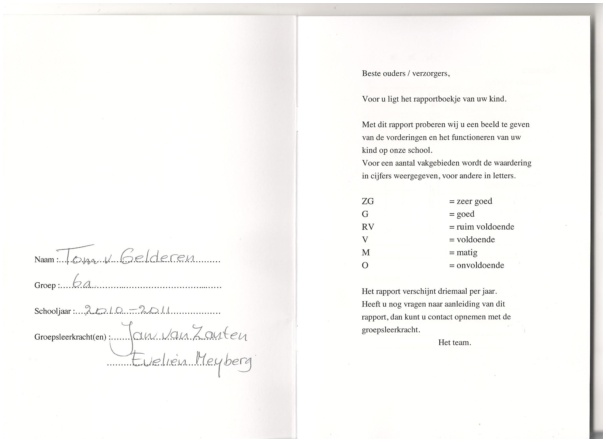 Naam : Tom v. Gelderen
Groep : 6a
Schooljaar : 2010-2011
Groepsleerkracht(en) : Jan van Zanten
Evelien Meyberg
Beste ouders / verzorgers,
Voor u ligt het rapportboekje van uw kind.
Met dit rapport proberen wij u een beeld te geven
van de vorderingen en het functioneren van uw
kind op onze school.
Voor een aantal vakgebieden wordt de waardering
in cijfers weergegeven, voor andere in letters.
ZG = zeer goed
G = goed
RV = ruim voldoende
V = voldoende
M = matig
O = onvoldoende
Het rapport verschijnt driemaal per jaar.
Heeft u nog vragen naar aanleiding van dit
rapport, dan kunt u contact opnemen met de
groepsleerkracht.
Het team.